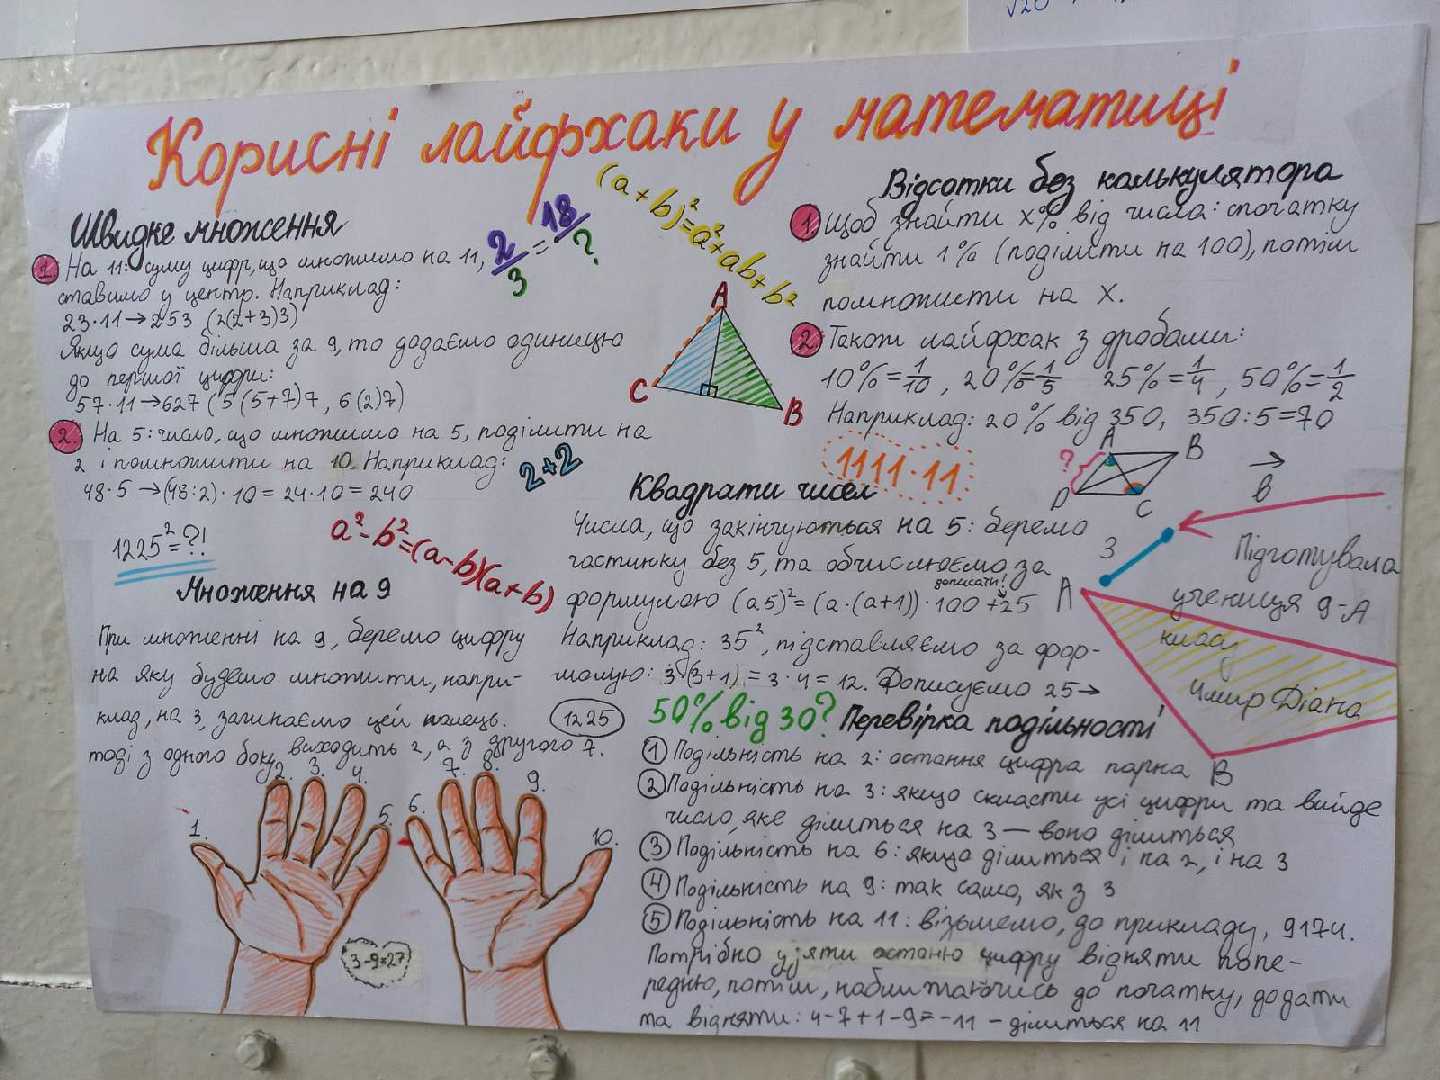 Корисні лайфхаки у математиці
Швидке множення
1 На 11: суму цифр, що множимо на 11,
ставимо у центр. Наприклад:
23·11→253 (2(2+3)3)
Якщо сума більша за 9, то додаємо одиницю
до першої цифри:
57·11→627 (5(5+7)7, 6(2)7)
2. На 5: число, що множимо на 5, поділити на
2 і помножити на 10. Наприклад:
48·5→(48:2)·10=24·10=240
2/3=18/?
(a+b)²=a²+ab+b²
A
C
B
2+2
1225²=?!
a²-b²=(a-b)(a+b)
Множення на 9
При множенні на 9, беремо цифру
на яку будемо множити, напри-
клад, на 3, загинаємо цей палець.
тоді з одного боку виходить 2, а з другого 7.
1.
2.
3.
4.
5.
6.
7.
8.
9.
10.
3·9=27
Відсотки без калькулятора
1 Щоб знайти x% від числа: спочатку
знайти 1% (поділити на 100), потім
помножити на x.
2 Також лайфхак з дробами:
10%=1/10, 20%=1/5 25%=1/4, 50%=1/2
Наприклад: 20% від 350, 350:5=70
1111·11
A
B
?
D
C
b
3
Квадрати чисел
Числа, що закінчуються на 5: беремо
частинку без 5, та обчислюємо за
дописати!
формулою (a5)²=(a·(a+1))·100+25
Наприклад: 35², підставляємо за фор-
мулою: 3·(3+1)=3·4=12. Дописуємо 25→
1225
A
B
Підготувала
учениця 9-А
класу
Імир Діана
50% від 30?
Перевірка подільності
1 Подільність на 2: остання цифра парна
2 Подільність на 3: якщо скласти усі цифри та вийде
число, яке ділиться на 3 — воно ділиться
3 Подільність на 6: якщо ділиться і на 2, і на 3
4 Подільність на 9: так само, як з 3
5 Подільність на 11: візьмемо, до прикладу, 9174.
Потрібно узяти останю цифру відняти попе-
редню, потім, наближаючись до початку, додати
та відняти: 4-7+1-9=-11 - ділиться на 11